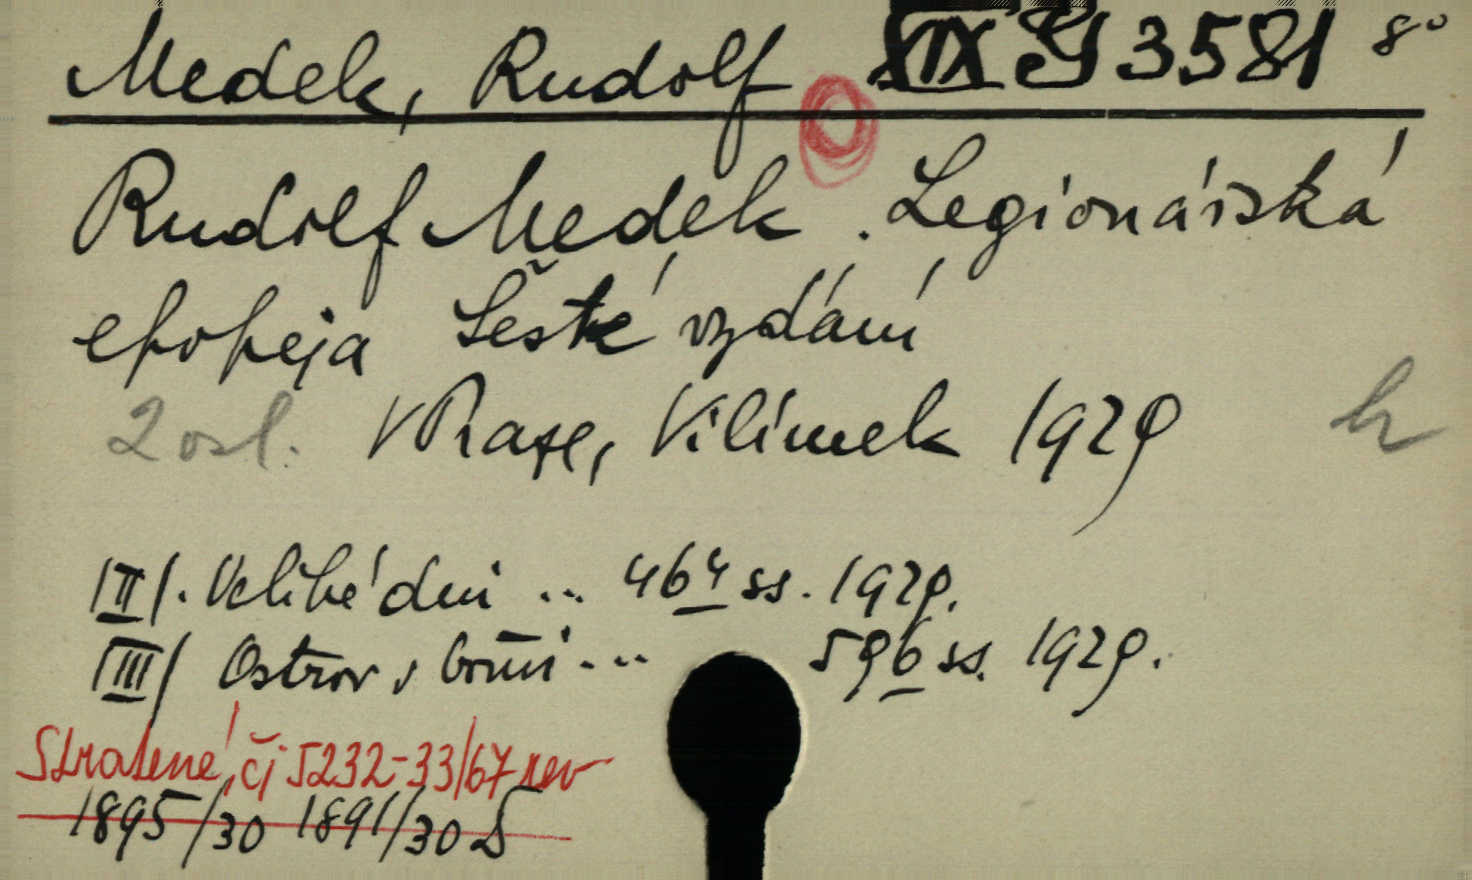 Medek, Rudolf XIX G 3581 8°
Rudolf Medek. Legionářská
epopeja Šesté vydání
2 osl. V Praze, Vilímek 1929 h
/II/. Veliké dni ... 464 ss. 1929.
/III/ Ostrov v bouři ... 596 ss. 1929.
Stratené, čj 5232-33/67 rev
1895/30 1891/30 D